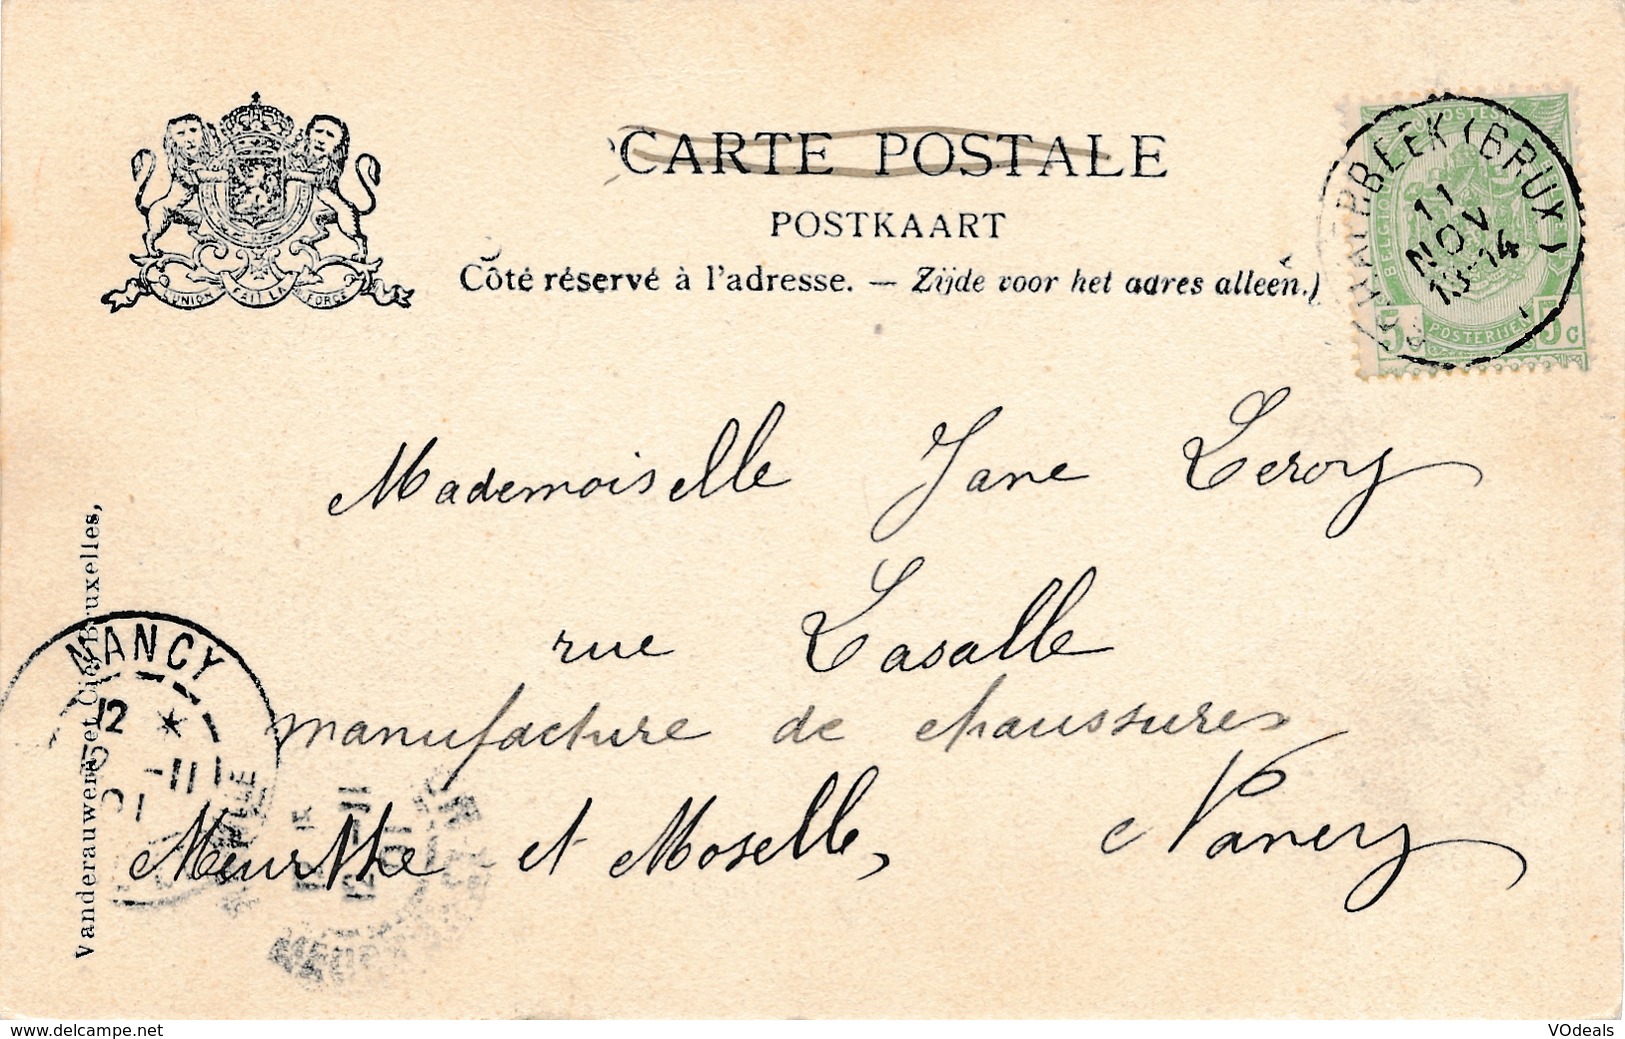 CARTE POSTALE
POSTKAART
Côté réservé à l'adresse. — Zijde voor het adres alleen.)
L'UNION FAIT LA FORCE
(BRUX)
11
NOV
13-14
POSTERIJEN
5 c
Mademoiselle Jane Leroy
rue Lasalle
manufacture de chaussures
Meurthe et Moselle, Nancy
Vanderauwera et Cie, Bruxelles,
NANCY
12
-11
www.delcampe.net
VOdeals